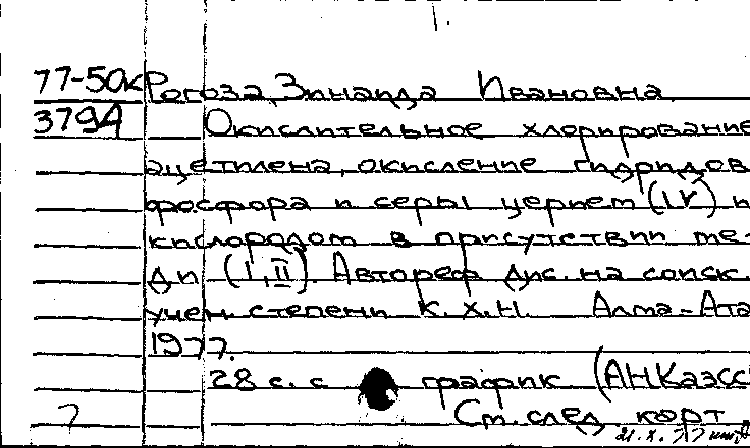 77-50к Рогоза, Зинаида Ивановна
3794 Окислительное хлорирование
ацетилена, окисление гидридов
фосфора и серы церием (IV) и
кислородом в присутствии ме-
ди (I, II). Автореф дис. на соиск.
учен. степени к. х.н. Алма-Ата
1977.
28 с. с график (АН Каз сс
См. след карт
21.X.77